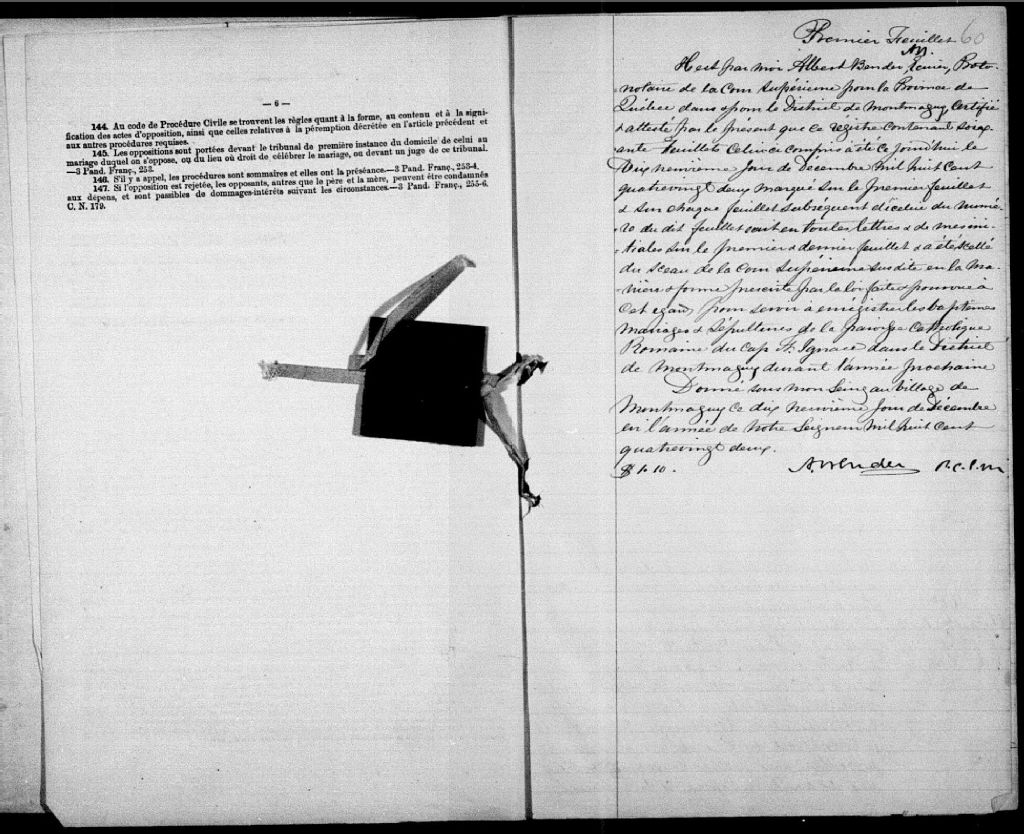 — 6 —
144. Au code de Procédure Civile se trouvent les règles quant à la forme, au contenu et à la signi-
fication des actes d'opposition, ainsi que celles relatives à la péremption décrétée en l'article précédent et
aux autres procédures requises.
145. Les oppositions sont portées devant le tribunal de première instance du domicile de celui au
mariage duquel on s'oppose, ou du lieu où droit de célébrer le mariage, ou devant un juge de ce tribunal.
—3 Pand. Franç., 253.
146. S'il y a appel, les procédures sont sommaires et elles ont la préséance.—3 Pand. Franç., 253-4.
147. Si l'opposition est rejetée, les opposants, autres que le père et la mère, peuvent être condamnés
aux dépens, et sont passibles de dommages-intérêts suivant les circonstances.—3 Pand. Franç., 255-6.
C. N. 179.
Premier Feuillet 60
Il est par moi Albert Bender, Ecuier, Proto-
notaire de la Cour Supérieure pour la Province de
Québec dans & pour le District de Montmagny, Certifié
& attesté par le présent que ce régistre contenant soix-
ante feuillets celui ci compris a été ce jourd'hui le
Dix neuvième Jour de Décembre Mil huit cent
quatrevingt deux marqué sur le premier feuillet
& sur chaque feuillet subséquent d'icelui du numé-
ro du dit feuillet écrit en toutes lettres & de mes ini-
tiales sur le premier & dernier feuillet & a été scellé
du sceau de la Cour Supérieure susdite en la Ma-
nière & forme prescrite par la loi faite & pourvue à
cet égard pour servir à enrégistrer les baptêmes
Mariages & Sépultures de la paroisse Catholique
Romaine du Cap St. Ignace dans le District
de Montmagny durant l'année prochaine
Donné sous mon Seing au Village de
Montmagny ce dix neuvième Jour de Décembre
en l'année de Notre Seigneur Mil huit cent
quatrevingt deux.
$ 1.10. A. Bender P.C.S.M